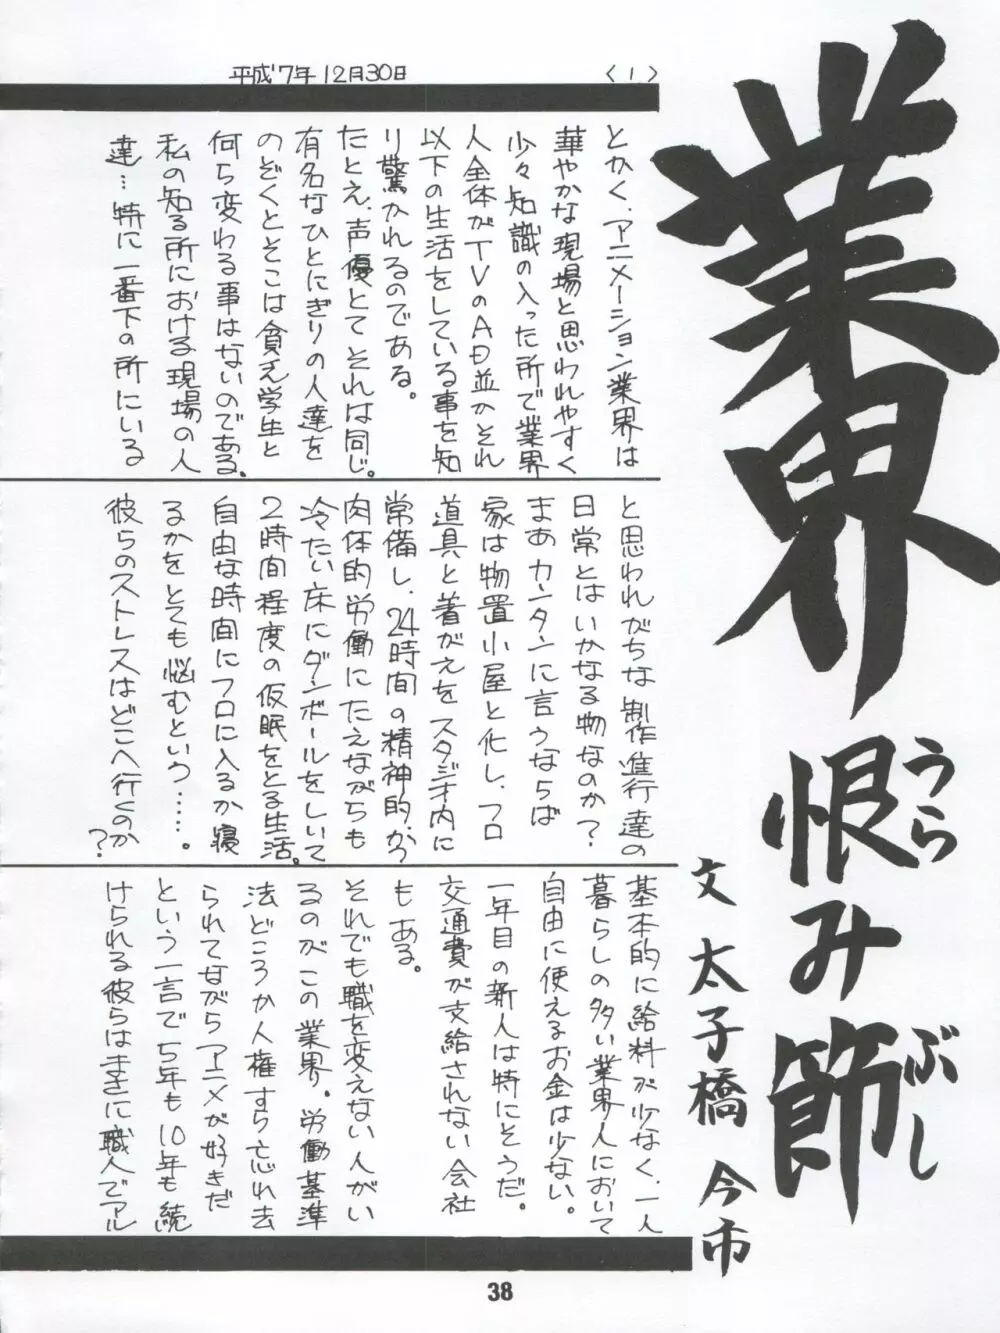 平成'7年12月30日
〈1〉
業界
恨み節
うら
ぶし
文 太子橋 今市
とかく、アニメーション業界は
華やかな現場と思われやすく
少々知識の入った所で業界
人全体がTVのAD並かそれ
以下の生活をしている事を知
り驚かれるのである。
たとえ、声優とてそれは同じ。
有名なひとにぎりの人達を
のぞくとそこは貧乏学生と
何ら変わる事はないのである。
私の知る所における現場の人
達…特に一番下の所にいる
と思われがちな制作進行達の
日常とはいかなる物なのか?
まあカンタンに言うならば
家は物置小屋と化し、フロ
道具と着がえをスタジオ内に
常備し、24時間の精神的かつ
肉体的労働にたえながらも
冷たい床にダンボールをしいて
2時間程度の仮眠をとる生活。
自由な時間にフロに入るか寝
るかをとても悩むという……。
彼らのストレスはどこへ行くのか
?
基本的に給料が少なく、一人
暮らしの多い業界人において
自由に使えるお金は少ない。
一年目の新人は特にそうだ。
交通費が支給されない会社
もある。
それでも職を変えない人がい
るのがこの業界。労働基準
法どころか人権すら忘れ去
られてながらアニメが好きだ
という一言で5年も10年も続
けられる彼らはまさに職人でアル
38